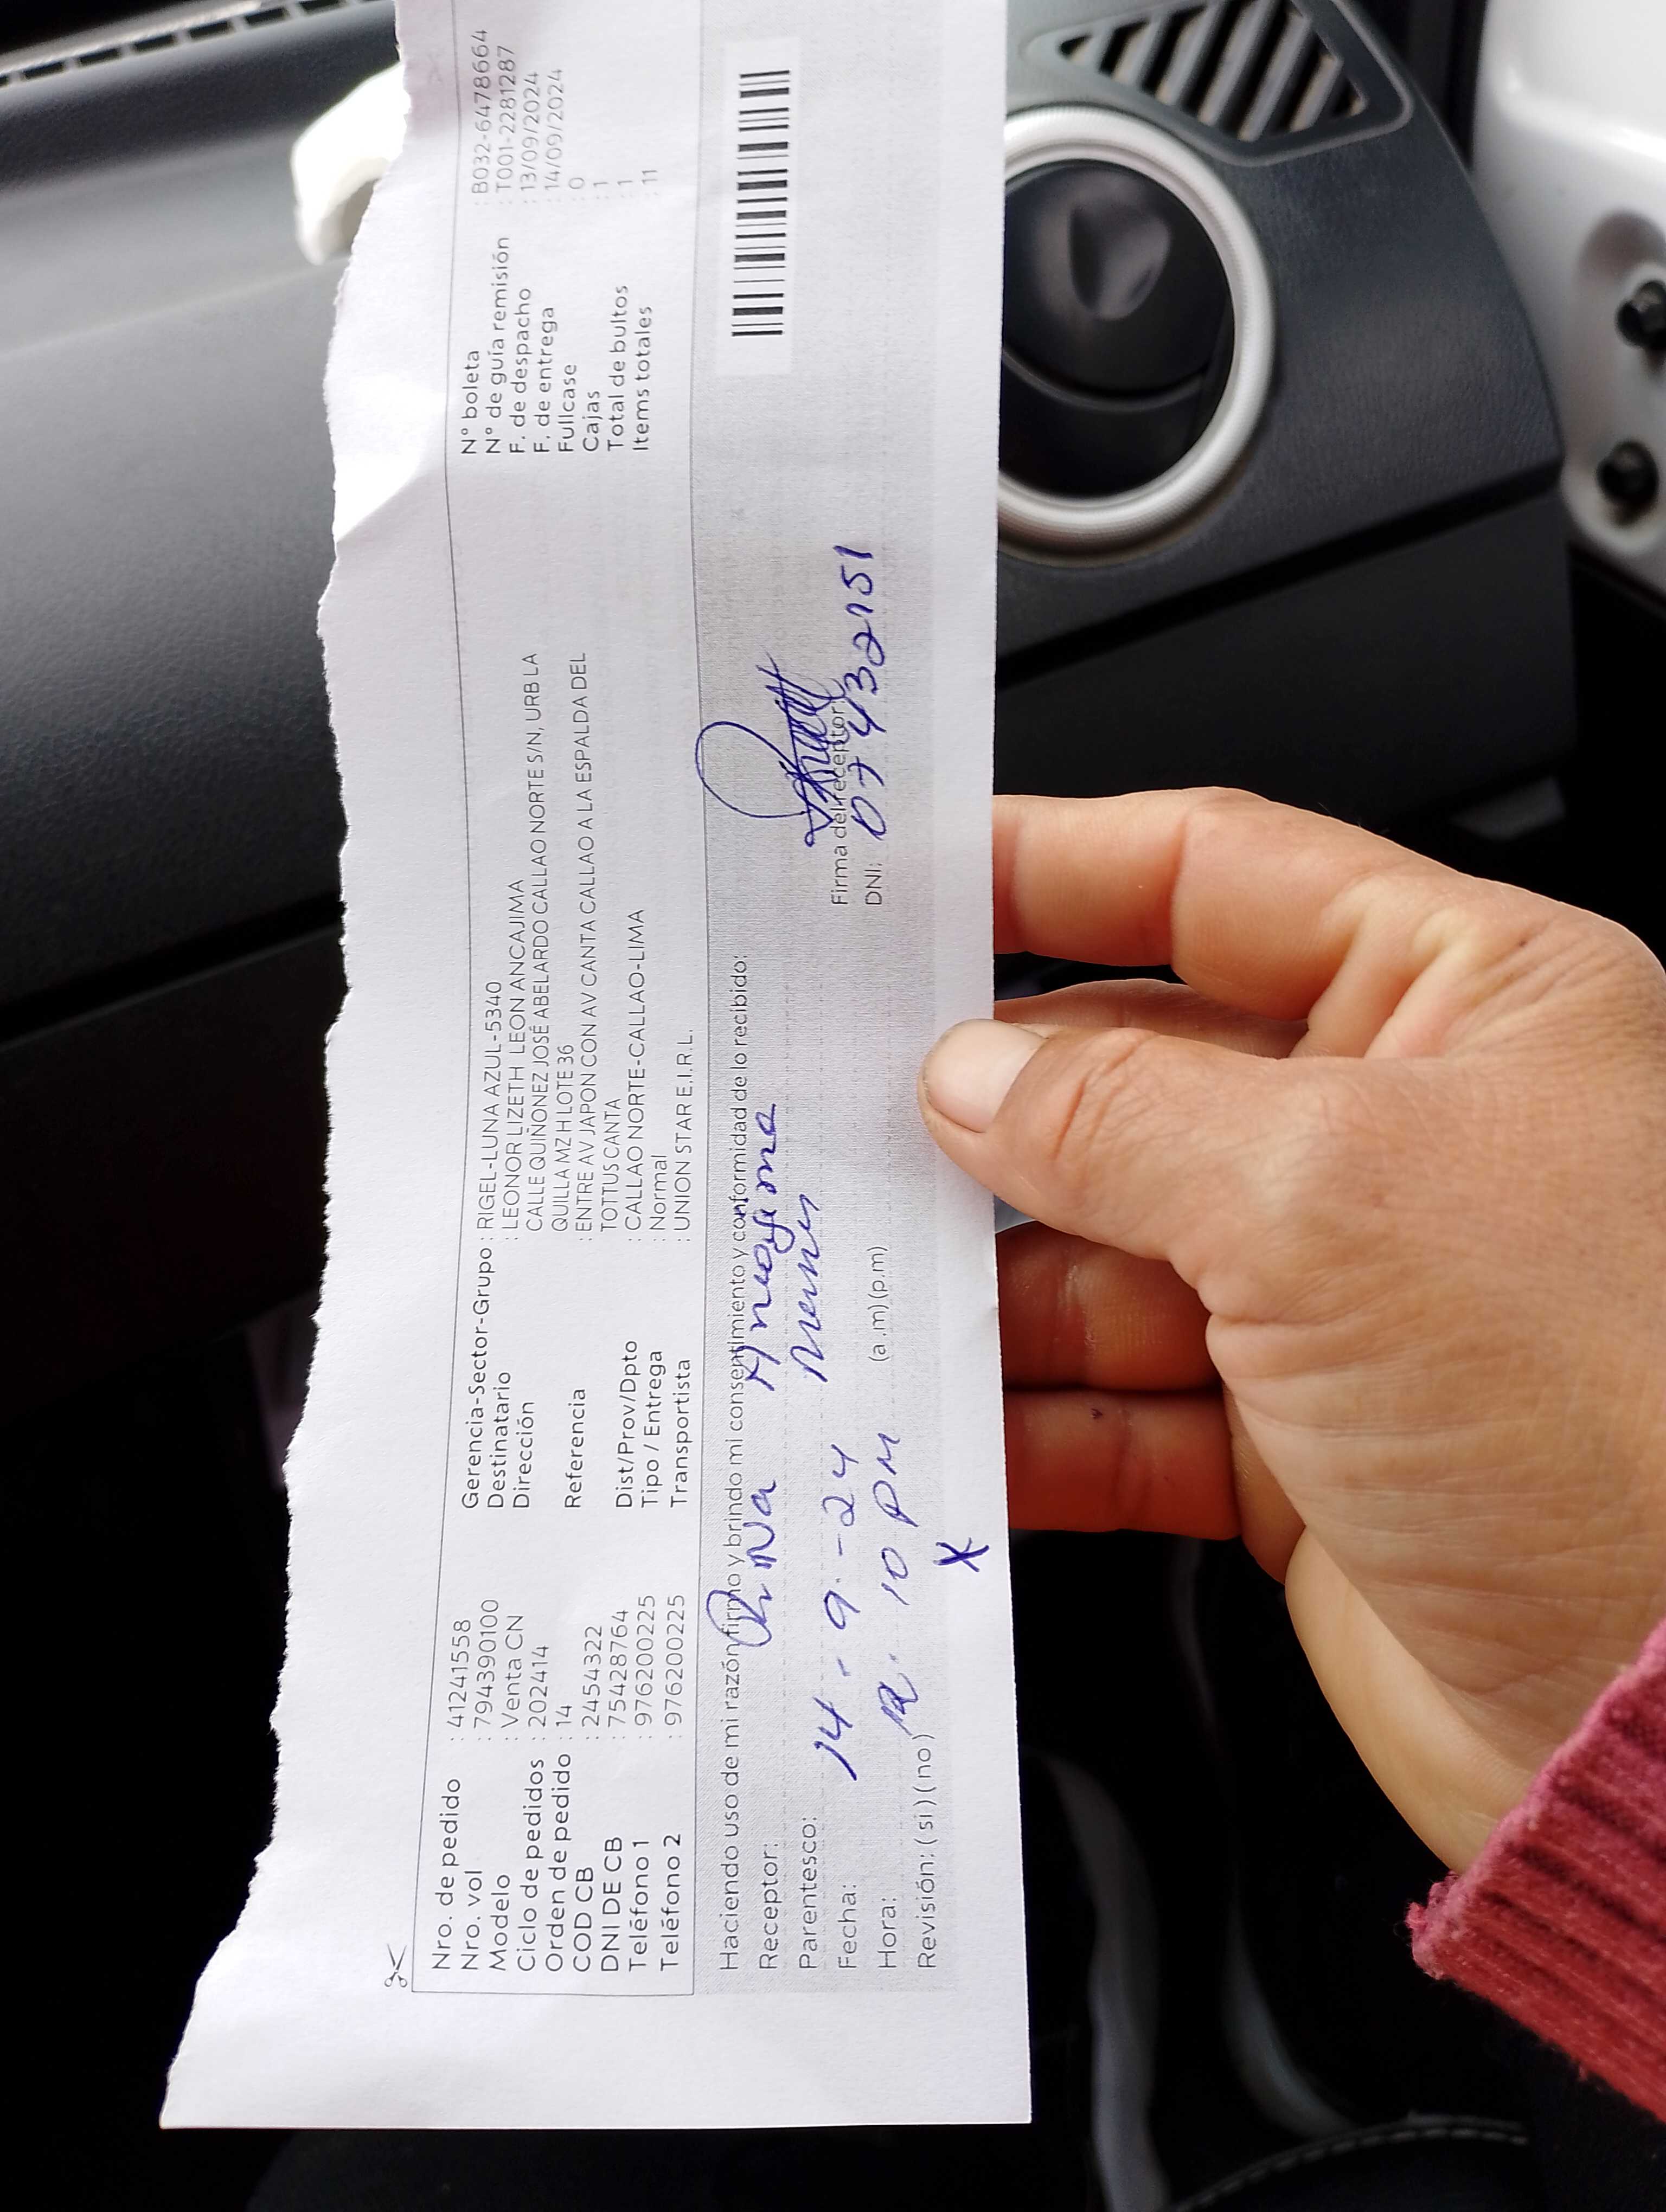 Nro. de pedido : 41241558
Nro. vol : 794390100
Modelo : Venta CN
Ciclo de pedidos : 202414
Orden de pedido : 14
COD CB : 2454322
DNI DE CB : 75428764
Teléfono 1 : 976200225
Teléfono 2 : 976200225
Gerencia-Sector-Grupo : RIGEL-LUNA AZUL-5340
Destinatario : LEONOR LIZETH LEON ANCAJIMA
Dirección : CALLE QUIÑONEZ JOSÉ ABELARDO CALLAO NORTE S/N, URB LA
QUILLA MZ H LOTE 36
Referencia : ENTRE AV JAPON CON AV CANTA CALLAO A LA ESPALDA DEL
TOTTUS CANTA
Dist/Prov/Dpto : CALLAO NORTE-CALLAO-LIMA
Tipo / Entrega : Normal
Transportista : UNION STAR E.I.R.L.
N° boleta : B032-6478664
N° de guía remisión : T001-2281287
F. de despacho : 13/09/2024
F. de entrega : 14/09/2024
Fullcase : 0
Cajas : 1
Total de bultos : 1
Items totales : 11
Haciendo uso de mi razón firmo y brindo mi consentimiento y conformidad de lo recibido:
Receptor:
Parentesco:
Fecha: 14 - 9 - 24
Hora: 12. 10 PM (a.m) (p.m)
Revisión: (si) (no) X
Firma del receptor
DNI: 07432151